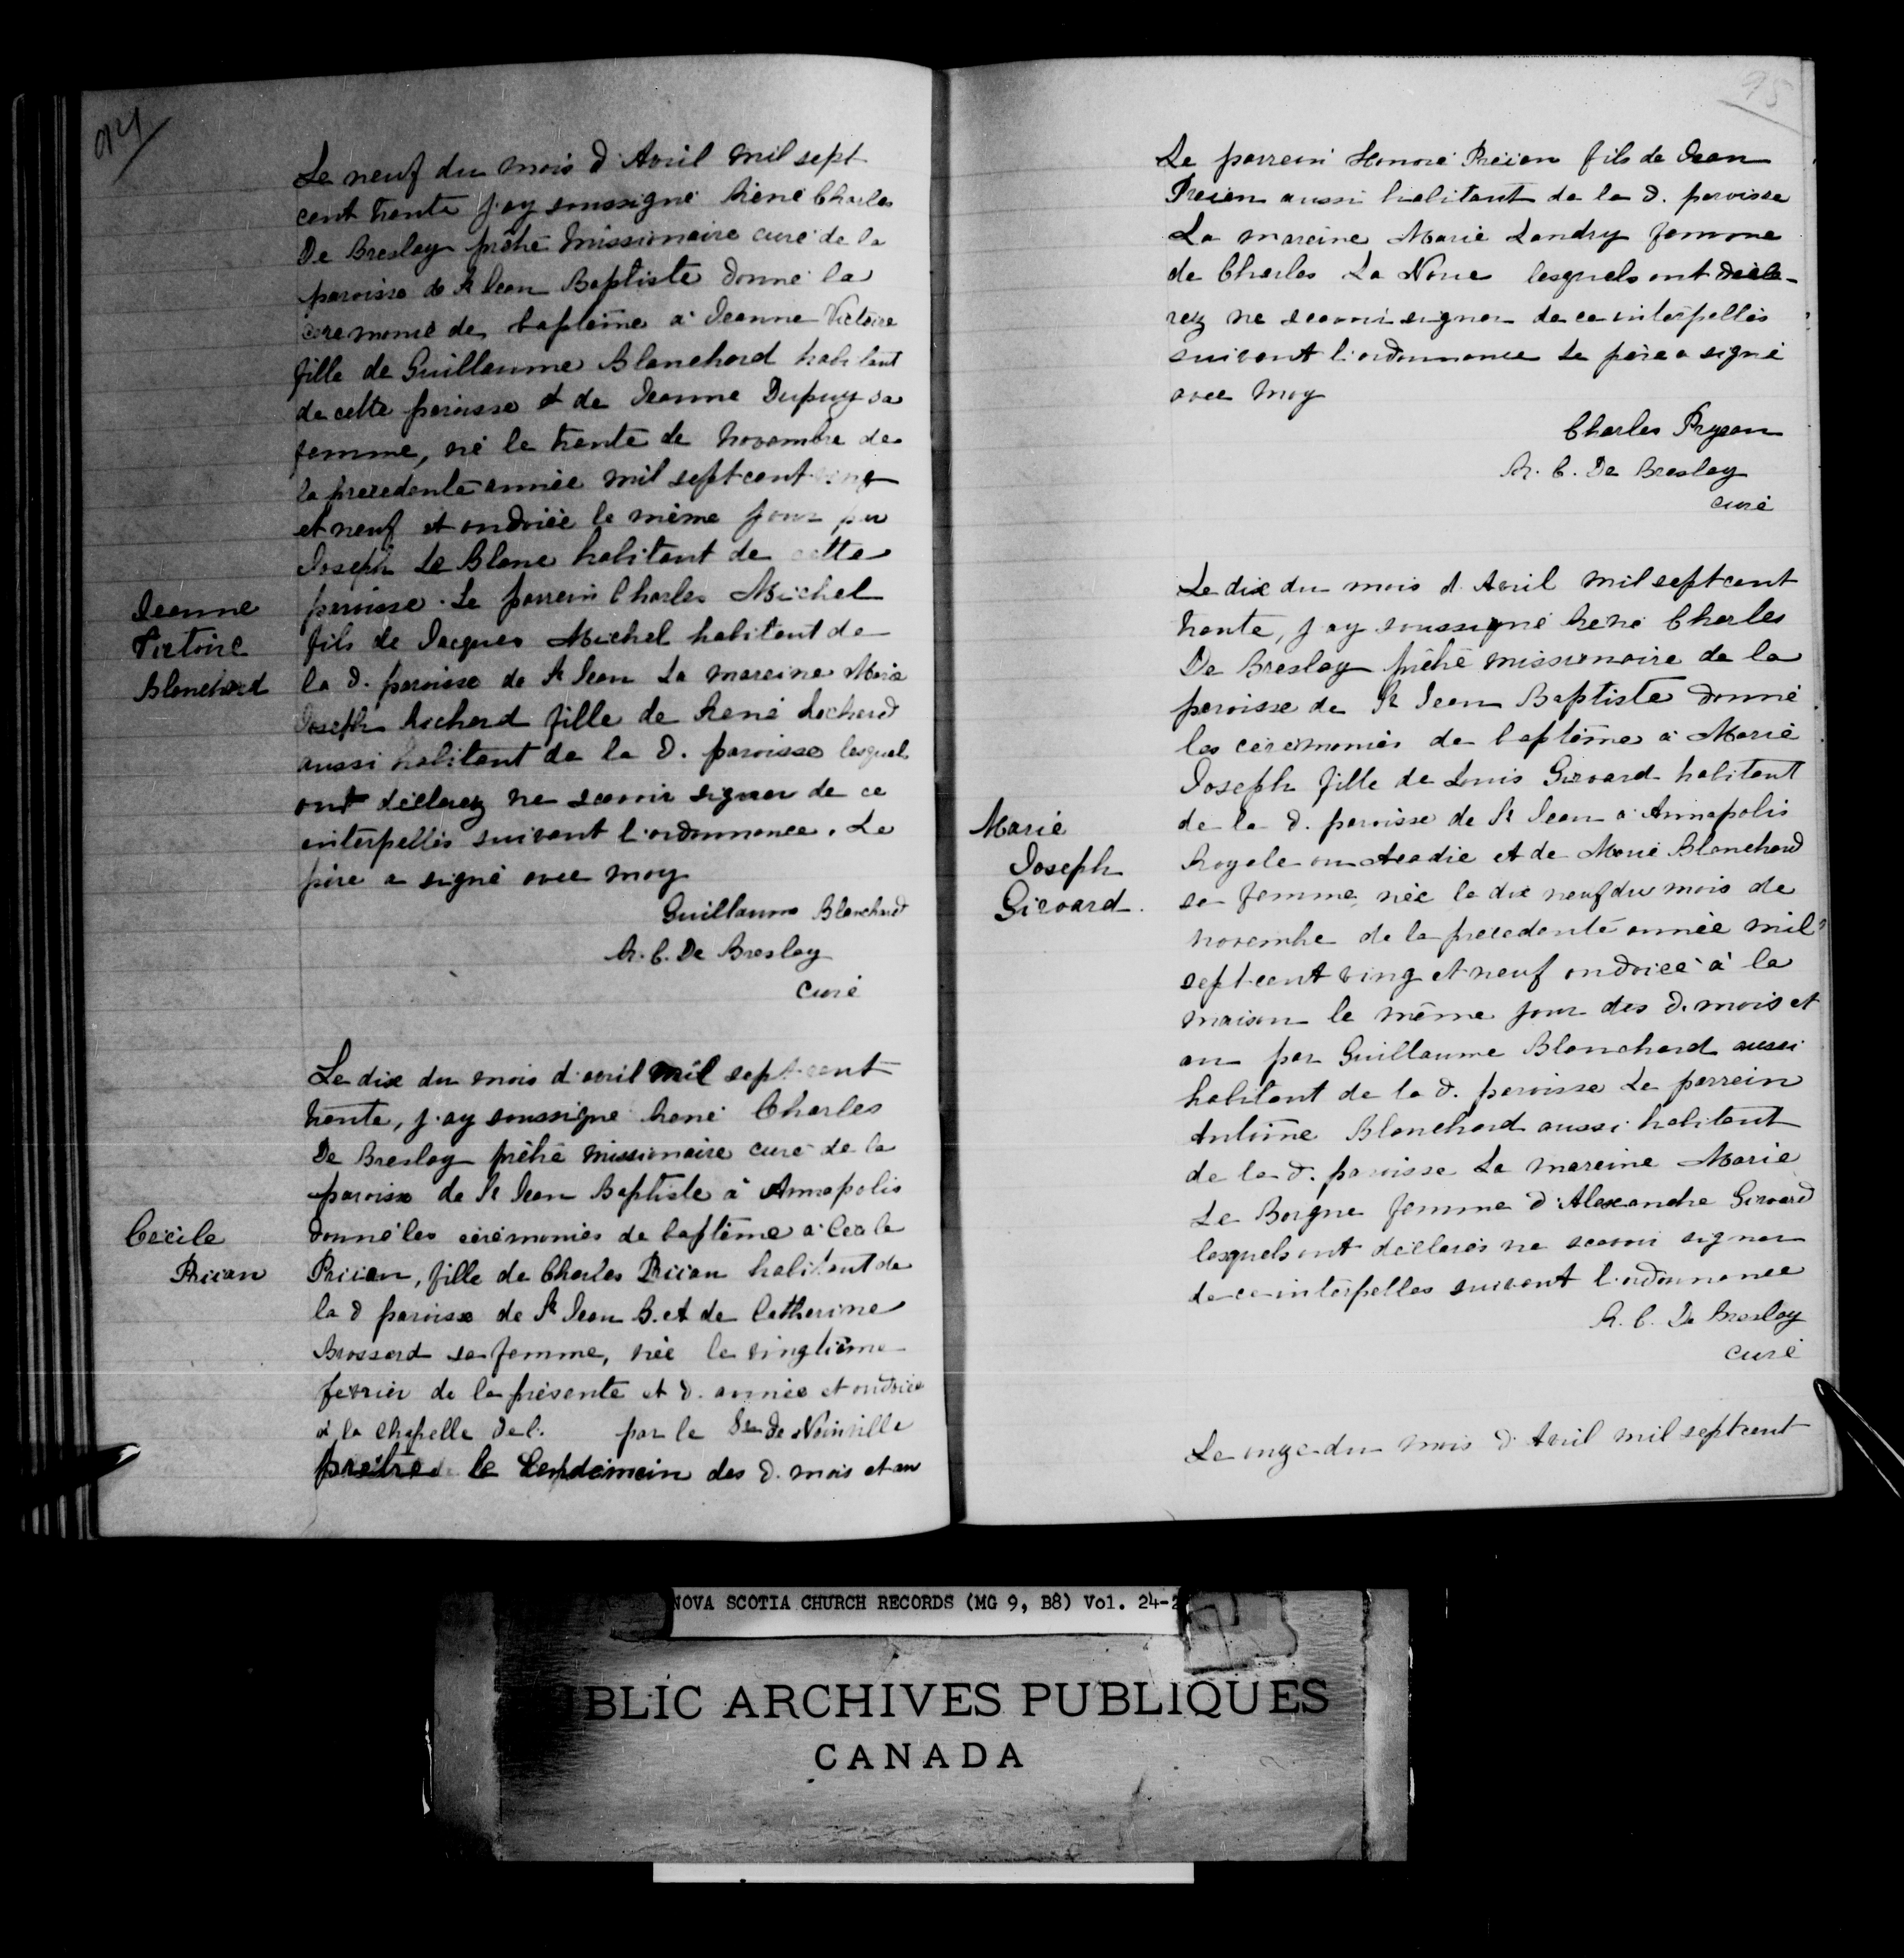 94
Le neuf du mois d'Avril mil sept
cent trente j'ay soussigné Réné Charles
De Breslay prêtre missionaire curé de la
paroisse de St Jean Baptiste donné la
ceremonie de baptême a Jeanne Victoire
fille de Guillaume Blanchard habitant
de cette paroisse et de Jeanne Dupuy sa
femme, né le trente de novembre de
la precedente année mil sept cent ving
et neuf et ondoiée le même jour par
Joseph Le Blanc habitant de cette
Jeanne
Victoire
Blanchard
paroisse. Le parrein Charles Michel
fils de Jacques Michel habitant de
la d. paroisse de St Jean La mareine Marie
Joseph Richard fille de René Richard
aussi habitant de la d. paroisse lesquels
ont déclarez ne scavoir signer de ce
interpellés suivant l'ordonnance. Le
père a signé avec moy
Guillaume Blanchard
R. C. De Breslay
Curé
Le dix du mois d'avril mil sept cent
trente, j'ay soussigné René Charles
De Breslay prêtre missionaire curé de la
paroisse de St Jean Baptiste à Annapolis
Cécile
Priian
donné les cérémonies de baptême a Cécile
Priian, fille de Charles Priian habitant de
la d paroisse de St Jean B. et de Catherine
Brossard sa femme, née le vingtième
fevrier de la présente et d. année et ondoiée
à la chapelle de l. par le Sr de Noinville
prêtre le lendemain des d. mois et an
95
Le parrein Honoré Priian fils de Jean
Preian aussi habitant de la d. paroisse
La mareine Marie Landry femme
de Charles La Noue lesquels ont décla-
rez ne scavoir signer de ce interpellés
suivant l'ordonnance Le père a signé
avec moy
Charles Prysan
R. C. De Breslay
curé
Le dix du mois d'Avril mil sept cent
trente, j'ay soussigné René Charles
De Breslay prêtre missionaire de la
paroisse de St Jean Baptiste donné
les cérémonies de baptême à Marie
Joseph fille de Louis Girvard habitant
Marie
Joseph
Girvard.
de la d. paroisse de St Jean a Annapolis
Royale en Acadie et de Marie Blanchard
sa femme, née le dix neuf du mois de
novembre de la precedente année mil
sept cent ving et neuf ondoiée à la
maison le même jour des d. mois et
an par Guillaume Blanchard aussi
habitant de la d. paroisse Le parrein
Antoine Blanchard aussi habitant
de la d. paroisse La mareine Marie
Le Borgne femme d'Alexandre Girvard
lesquels ont déclarés ne scavoir signer
de ce interpelles suivant l'ordonnance
R. C. De Breslay
curé
Le onze du mois d'Avril mil sept cent
NOVA SCOTIA CHURCH RECORDS (MG 9, B8) Vol. 24-2
BLIC ARCHIVES PUBLIQUES
CANADA